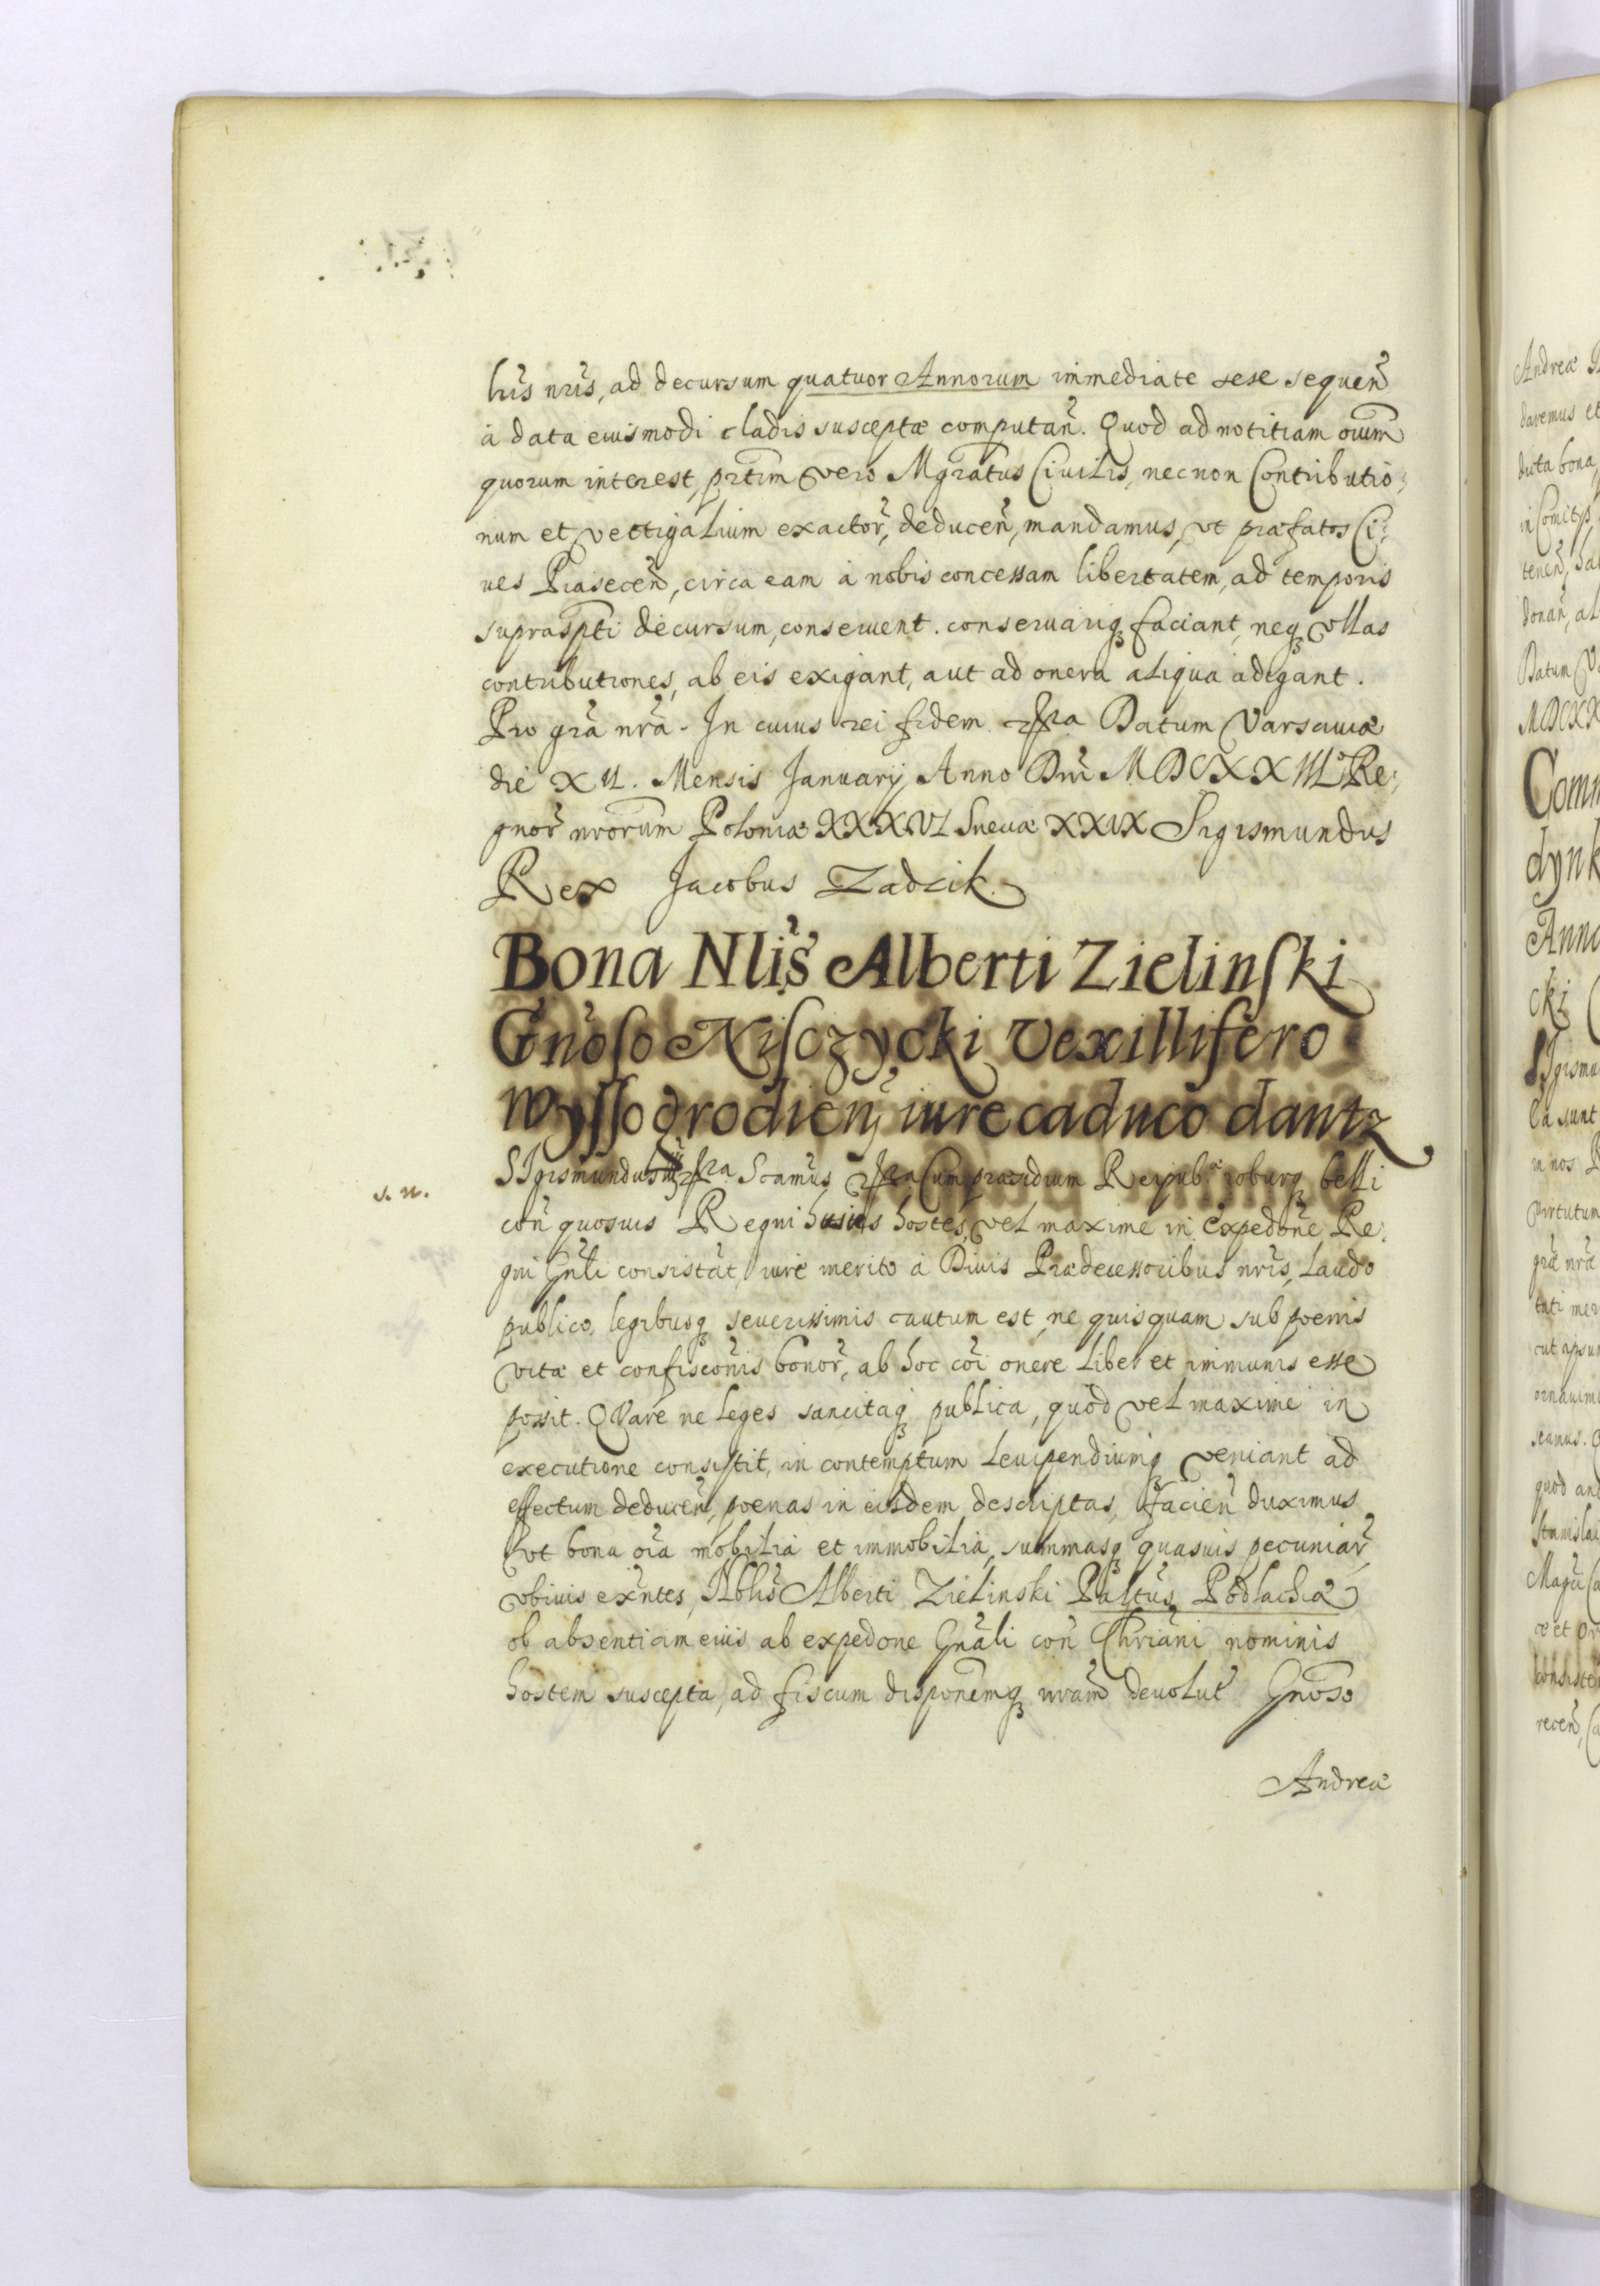 lris nris, ad decursum quatuor Annorum immediate sese sequen̄
à data eiusmodi cladis susceptæ computan̄. Quod ad notitiam oium̄
quorum interest, prtim̄ vero Mgratus Ciuilis, necnon Contributio,
num et vectigalium exactor̄, deducen̄, mandamus, vt præfatos Ci,
ues Piasecen̄, circa eam à nobis concessam libertatem, ad temporis
suprasp̄ti decursum, conseruent. conseruariq́ faciant, neq́ vllas
contributiones, ab eis exigant, aut ad onera aliqua adigant.
Pro gr̄a nr̄a. In cuius rei fidem Datum Varsauiæ
die XII. Mensis Januarij Anno Dni MDCXXIII.º Re,
gnor̄ nrorum̄ Poloniæ XXXVI Sueciæ XXIX Sigismundus
Rex Jacobus Zadzik
Bona Nlis̄ Alberti Zielinski
Gn̄oso Nisczycki Vexillifero
Wyssogrodien̄, iure caduco dantz
s. n.
SIgismundus Scamus, Cum præsidium Reipub.æ roburq́ belli
con̄ quosuis Regni huius hostes, vel maxime in expedōne Re,
gni Gn̄li consistat, iure merito à Diuis Prædecessoribus nr̄is, Laudo
publico, legibusq́ seuerissimis cautum est, ne quisquam sub poenis
vitæ et confiscōnis bonor̄, ab hoc cōi onere liber et immunis esse
possit. QVare ne leges sancitaq́ publica, quod vel maxime in
executione consistit, in contemptum Leuipendiumq́ veniant ad
effectum deducen̄, poenas in eisdem descriptas, facien̄ duximus
vt bona oīa mobilia et immobilia, summasq́ quasuis pecuniar̄
vbiuis exn̄tes, Nblis̄ Alberti Zielinski Pal̄tus Podlachiæ
ob absentiam eius ab expedōne Gn̄ali con̄ Chr̄iani nominis
hostem suscepta, ad fiscum disponem̄q́ nram̄ deuolut̄ Gn̄oso
Andreæ